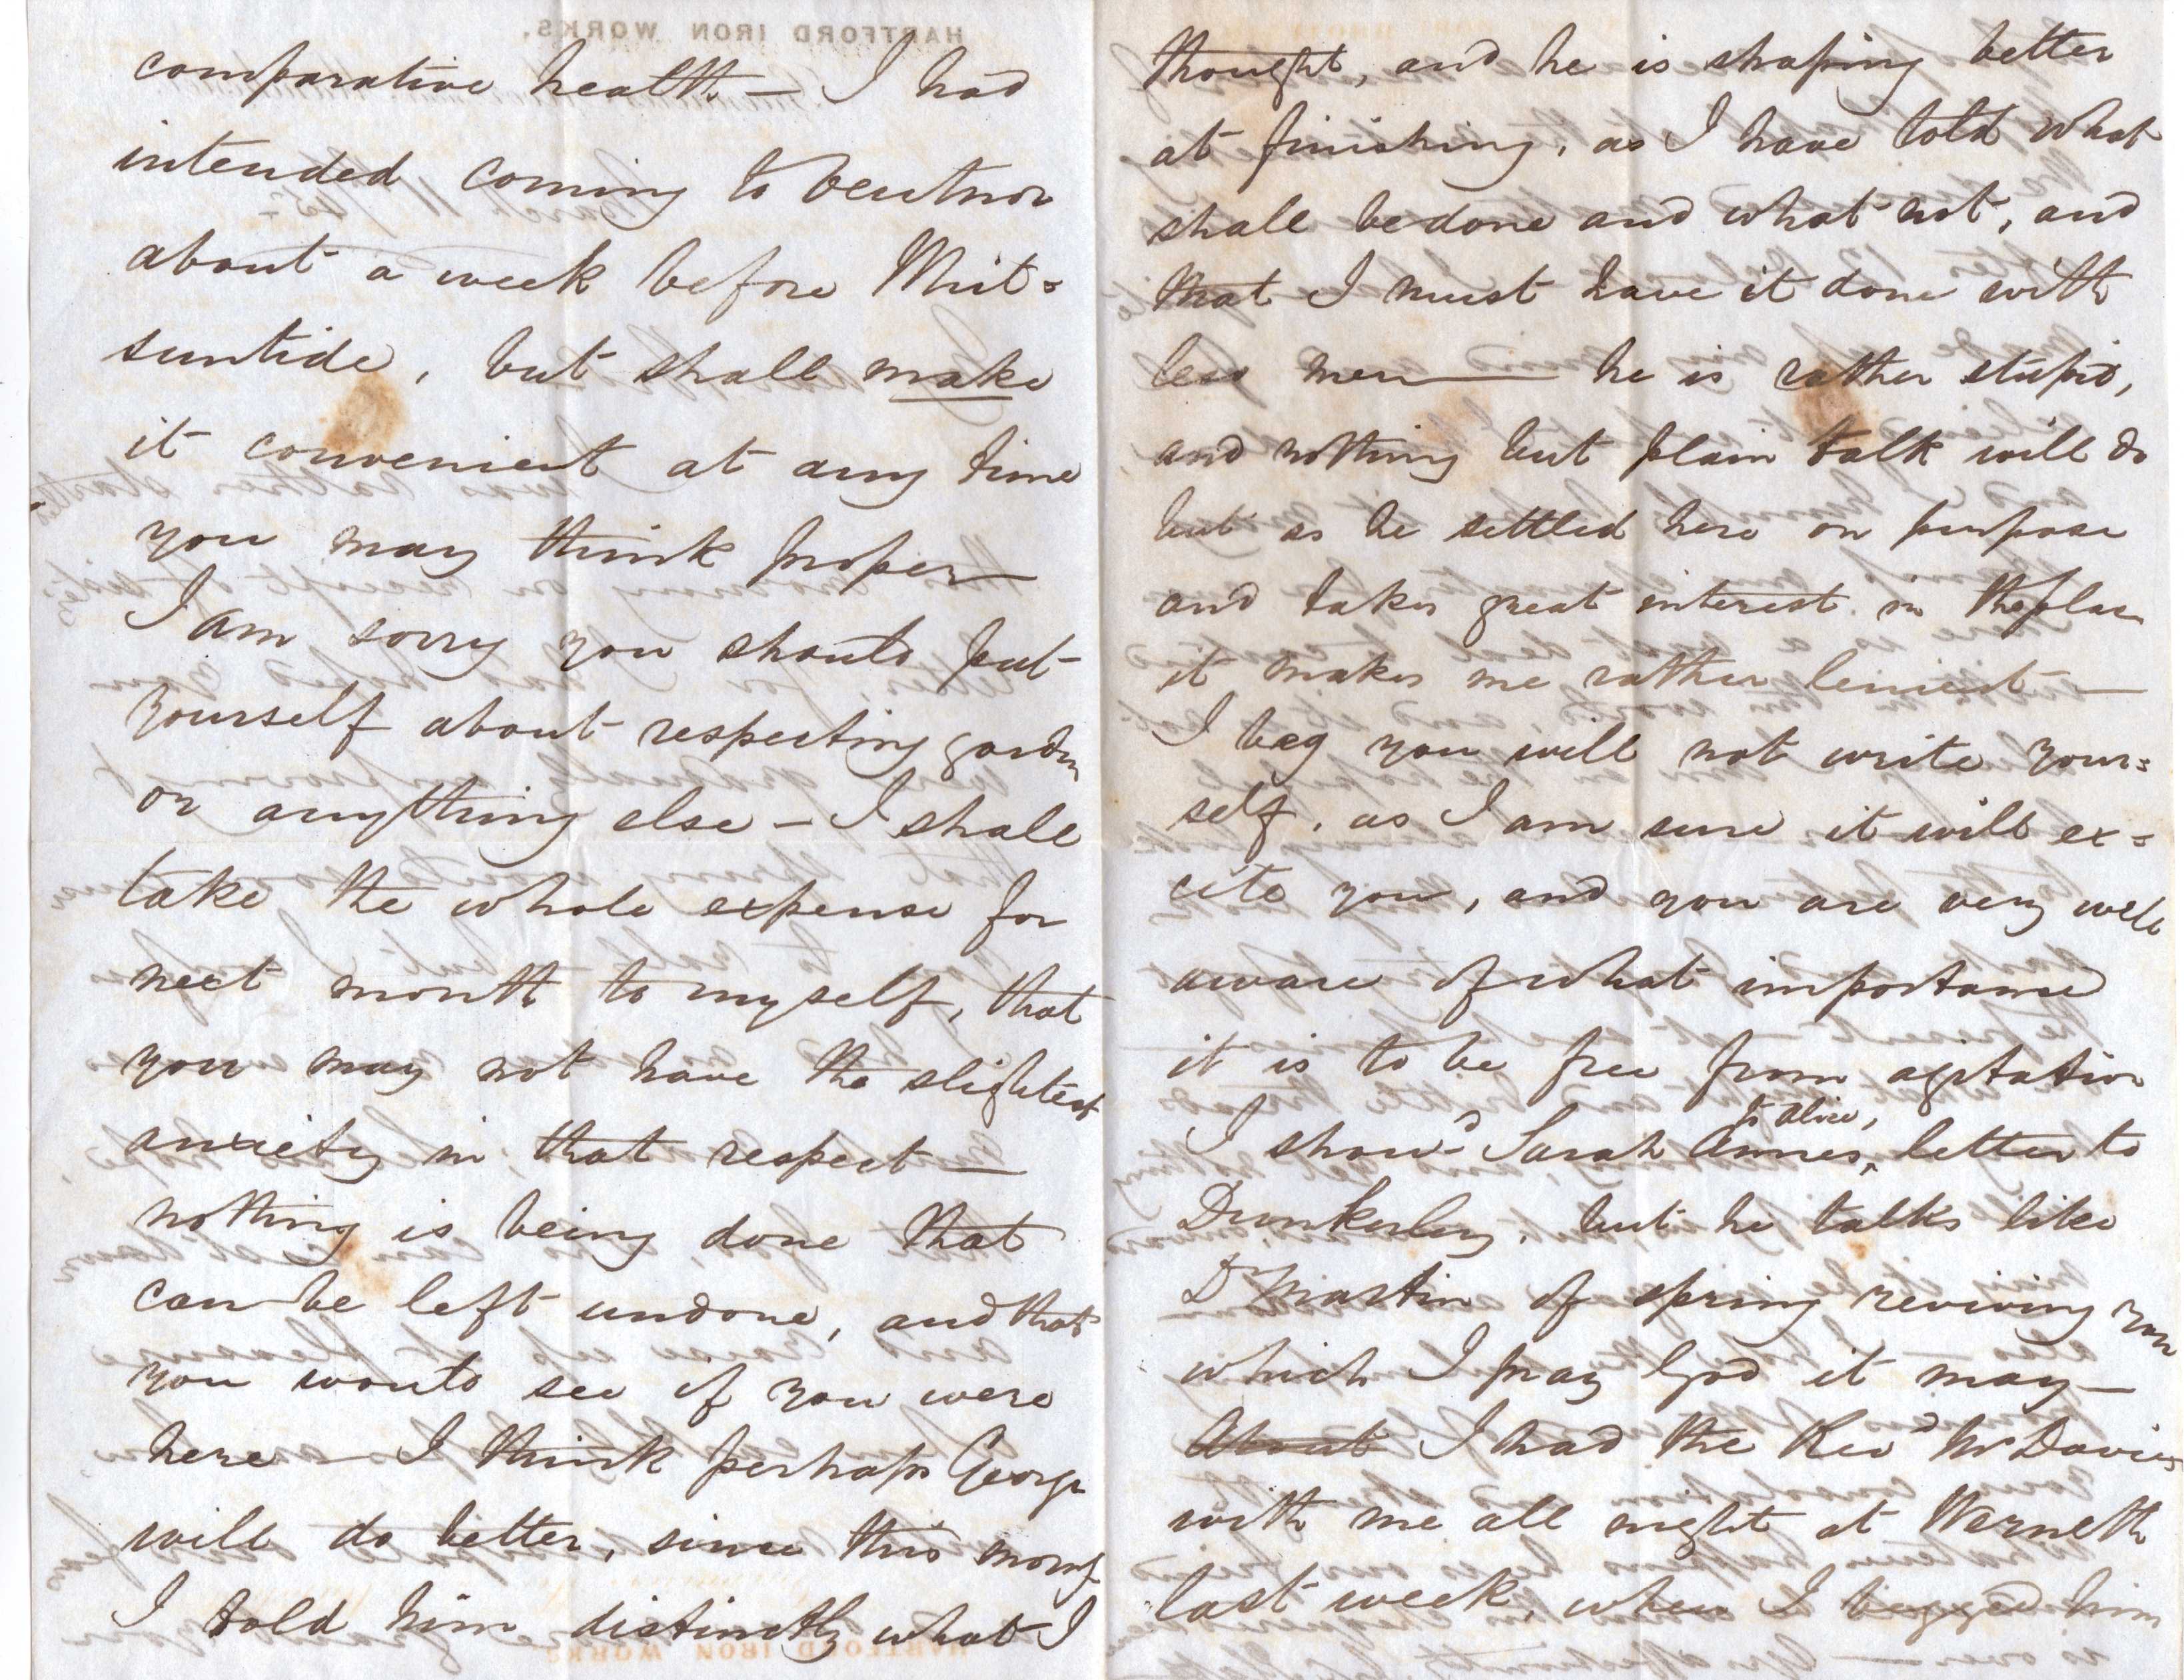 comparative health — I had
intended coming to Ventnor
about a week before Whit=
suntide, but shall make
it convenient at any time
you may think proper —
I am sorry you should put
yourself about respecting garden
or anything else — I shall
take the whole expense for
next month to myself, that
you may not have the slightest
anxiety in that respect —
nothing is being done that
can be left undone, and that
you would see if you were
here — I think perhaps George
will do better, since this morng
I told him distinctly what I
thought, and he is shaping better
at finishing, as I have told what
shall be done and what not, and
that I must have it done with
less men — he is rather stupid,
and nothing but plain talk will do
but as he settled here on purpose
and takes great interest in the place
it makes me rather lenient —
I beg you will not write your=
self, as I am sure it will ex=
cite you, and you are very well
aware of what importance
it is to be free from agitation
I show'd Sarah Annes ^to Alice, letter to
Dunkerley, but he talks like
Dr Martin of spring reviving you
which I pray God it may —
About I had the Revd Mr Davies
with me all night at Werneth
last week, when I begged him
HARTFORD IRON WORKS.
HARTFORD IRON WORKS